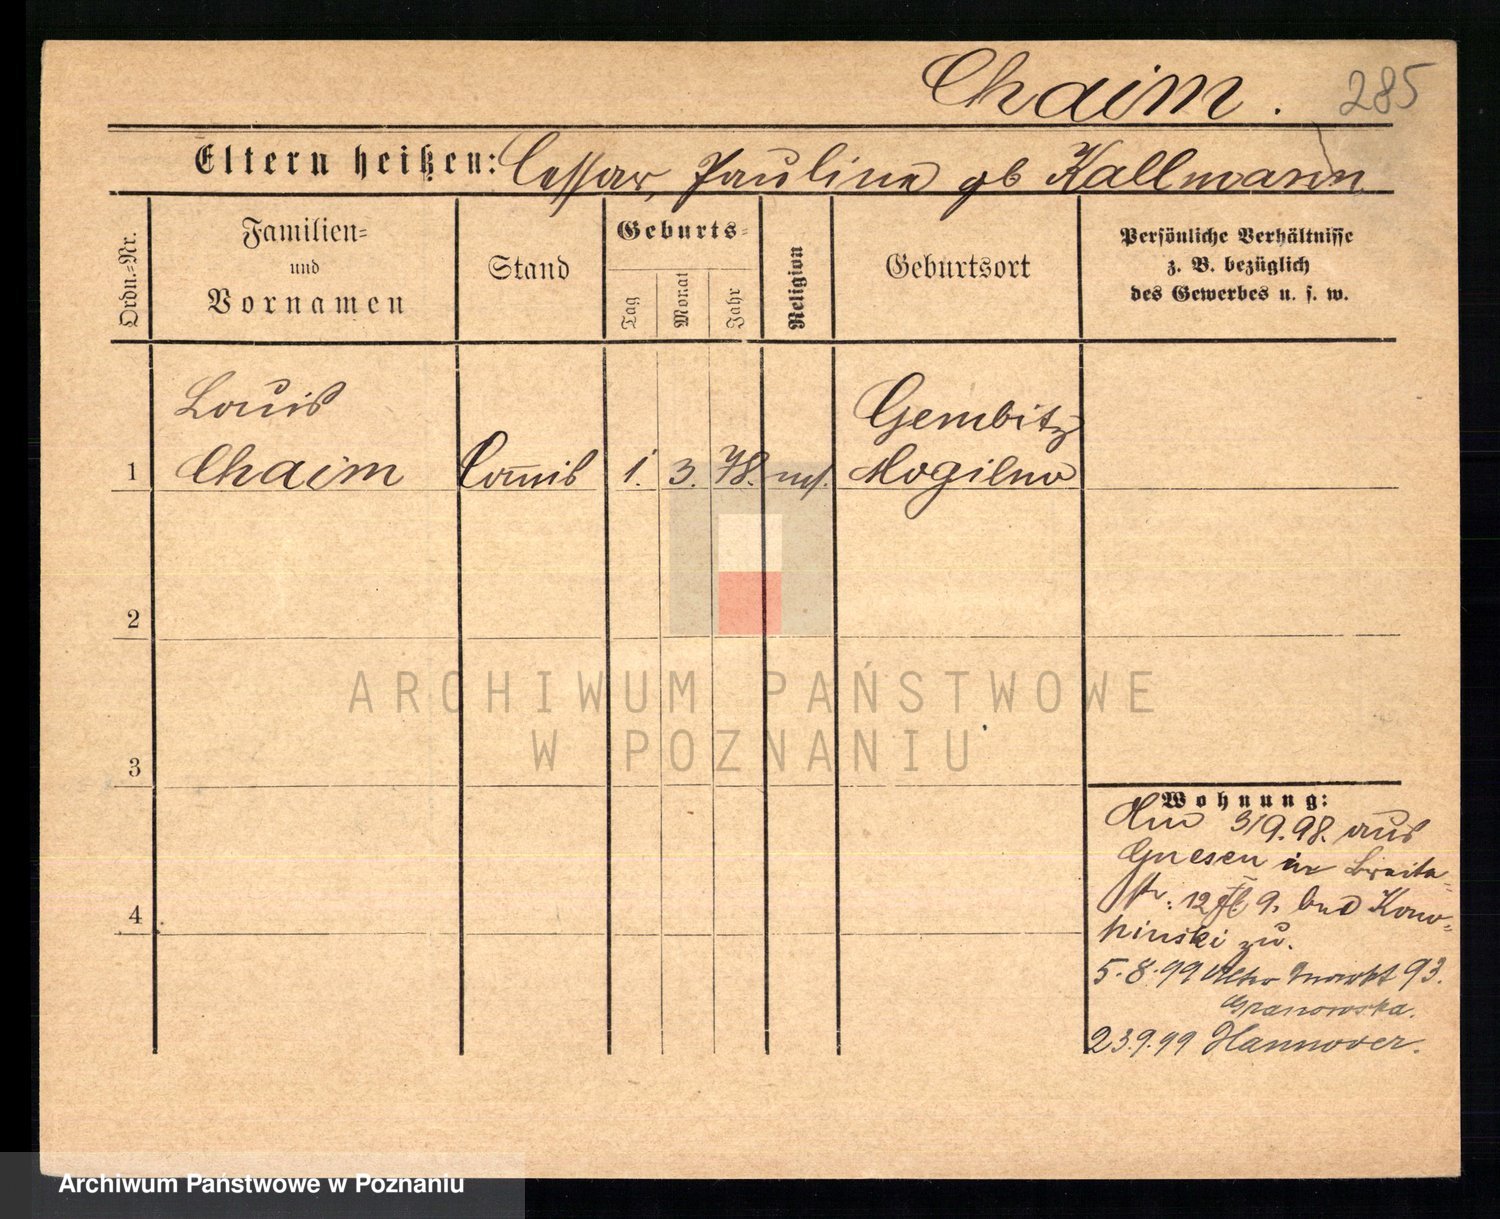 Chaim. 285
Eltern heißen: Cessar, Pauline gb Kallmann
Ordn.-Nr.
Familien-
und
Vornamen
Stand
Geburts-
Tag
Monat
Jahr
Religion
Geburtsort
Persönliche Verhältnisse
z. B. bezüglich
des Gewerbes u. s. w.
Louis Gembitz
1 Chaim Com̅is 1. 3. 78. mos. Mogilno
2
ARCHIWUM PAŃSTWOWE
W POZNANIU
3
Wohnung:
3/9.98. aus
Gnesen in Breite-
str. 12 9. bei Kono-
pinski zu.
4
5.8.99 Alter Markt 93.
Granowska.
23.9.99 Hannover.
Archiwum Państwowe w Poznaniu